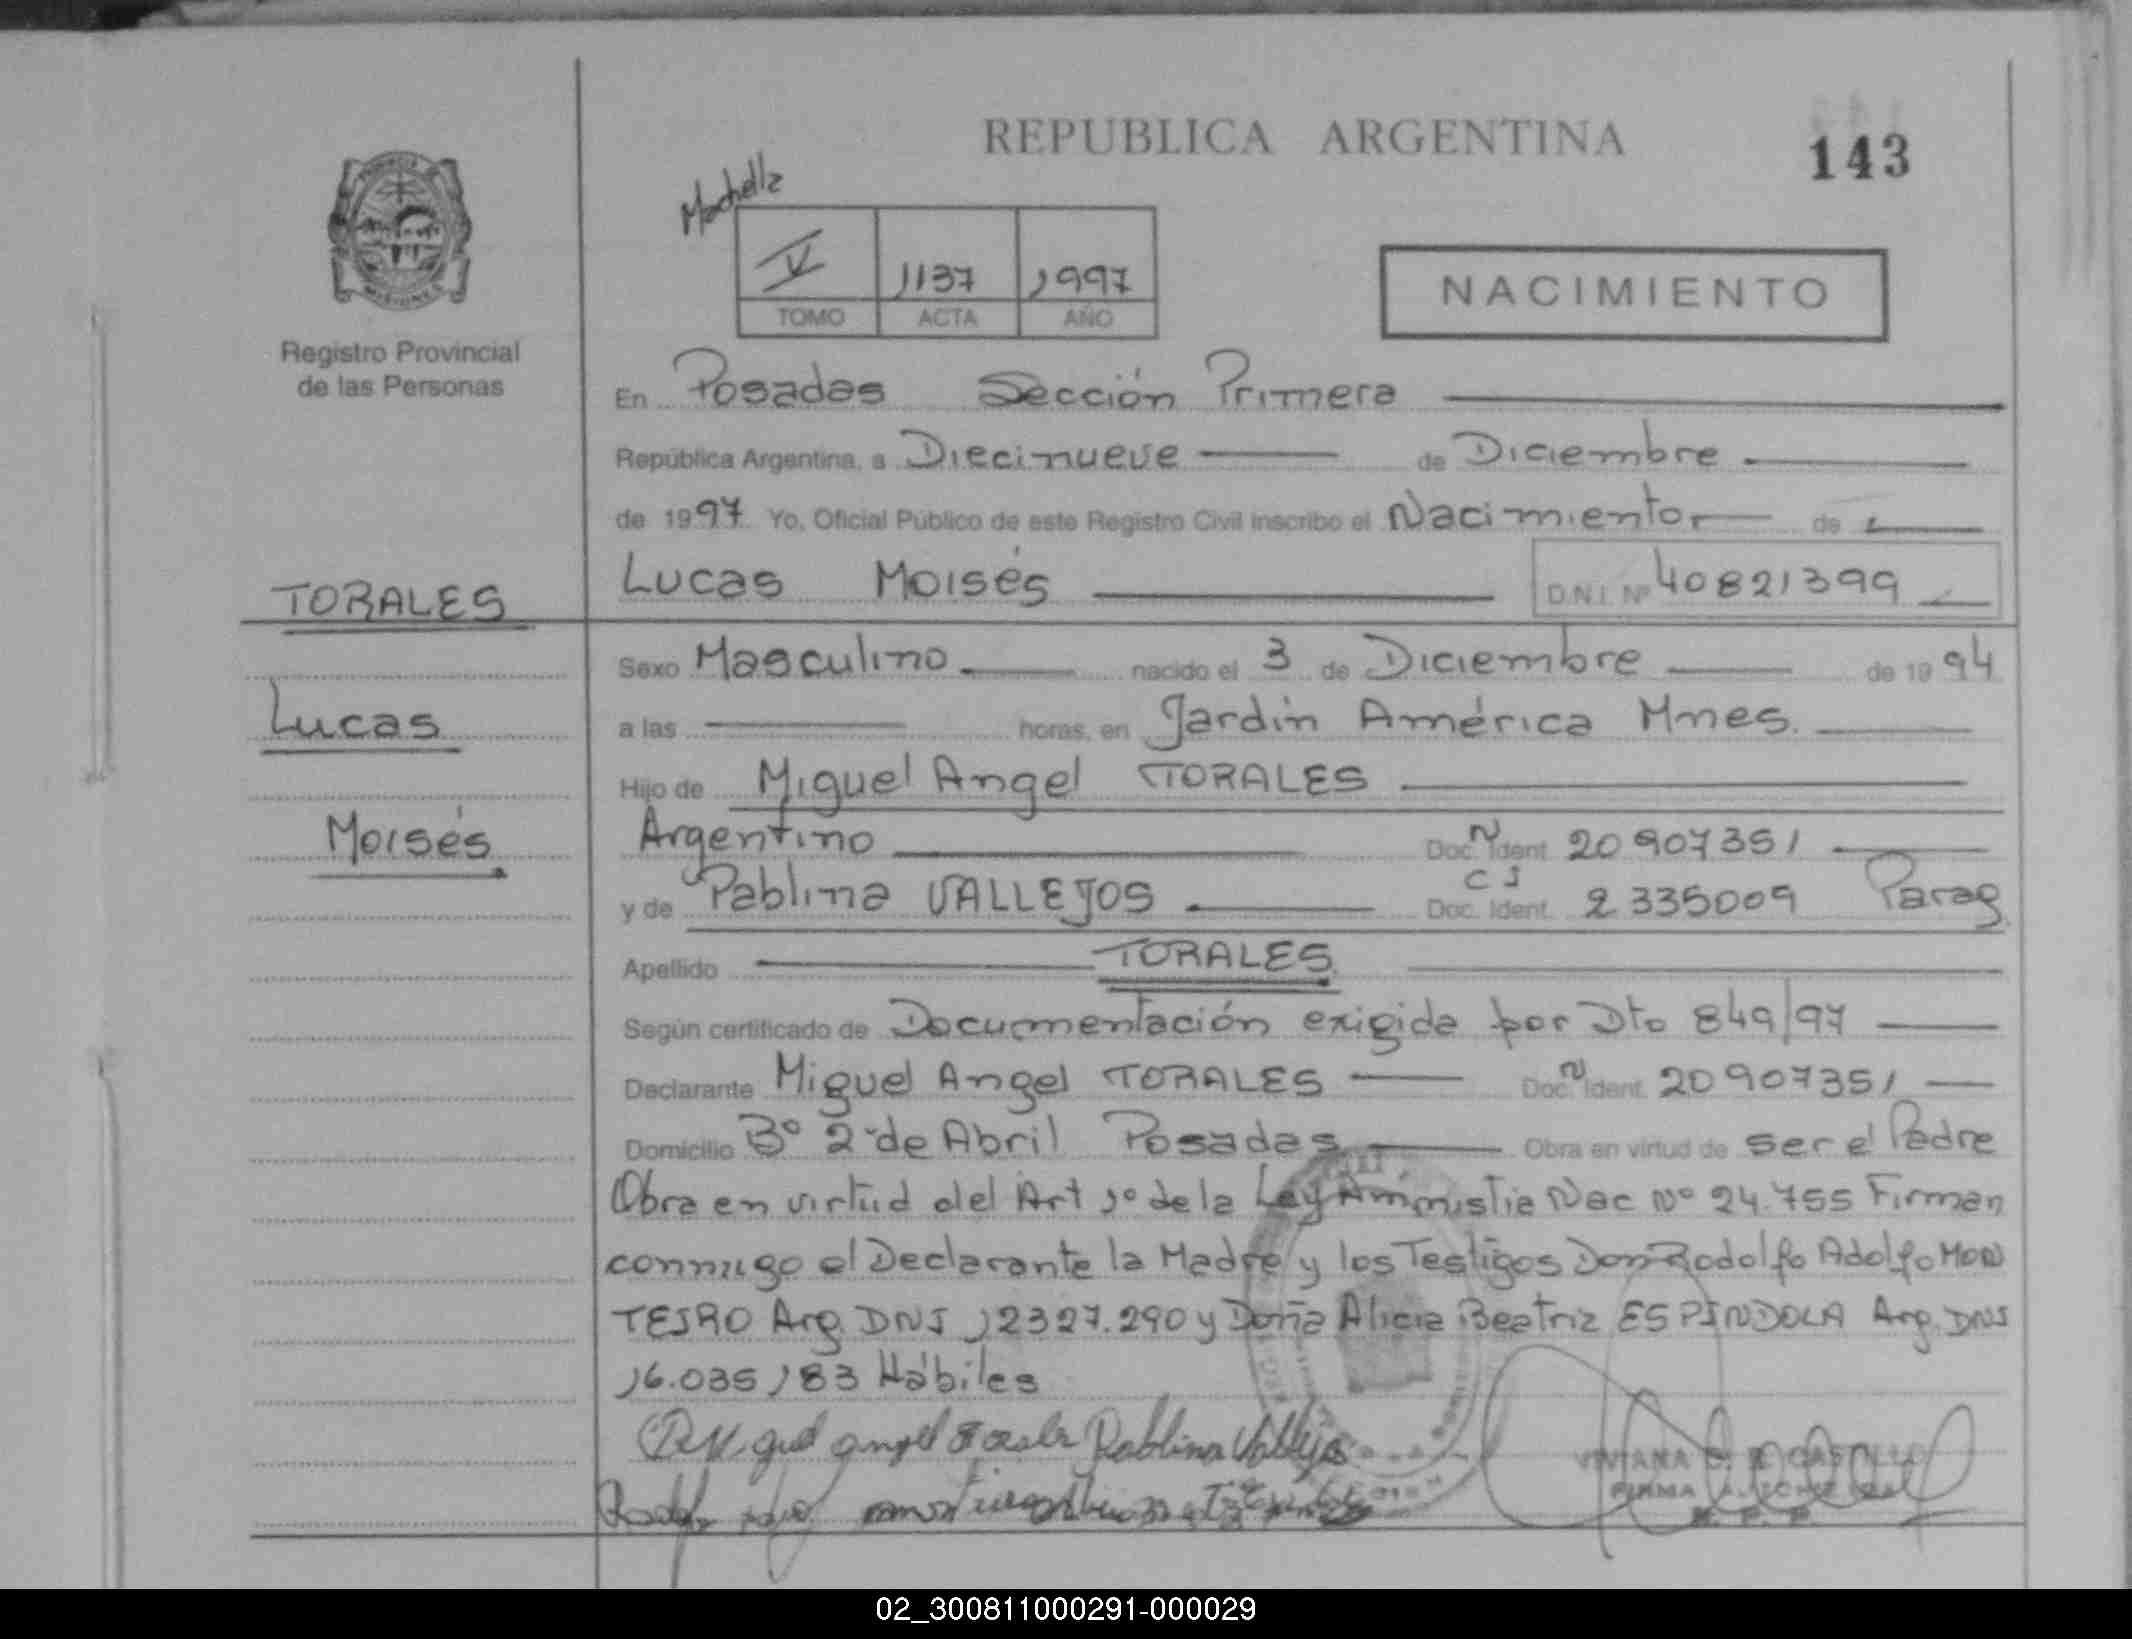 REPUBLICA ARGENTINA
143
V 1137 1997
TOMO ACTA AÑO
NACIMIENTO
Registro Provincial
de las Personas
En Posadas Sección Primera
República Argentina, a Diecinueve de Diciembre
de 1997 Yo, Oficial Público de este Registro Civil inscribo el Nacimiento de
TORALES
Lucas Moisés D.N.I. Nº 40821399
Sexo Masculino nacido el 3 de Diciembre de 1994
Lucas
a las horas, en Jardin América Mnes.
Hijo de Miguel Angel TORALES
Moisés
Argentino Doc. N Ident 20907351
y de Pablina VALLEJOS Doc. Ident. C I 2335009 Parag
Apellido TORALES
Según certificado de Documentación exigida por Dto 849/97
Declarante Miguel Angel TORALES Doc. N Ident. 20907351
Domicilio Bº 2 de Abril Posadas Obra en virtud de ser el Padre
Obra en virtud del Art 1º de la Ley Amnistia Nac Nº 24.755 Firman
conmigo el Declarante la Madre y los Testigos Don Rodolfo Adolfo MON
TEIRO Arg. DNI 12327.290 y Doña Alicia Beatriz ESPINDOLA Arg. DNI
16.035183 Hábiles
Pablina Vallejos
VIVIANA CASTILLO
FIRMA
R. P. P.
02_300811000291-000029